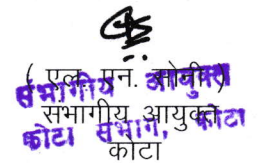 ( एल. एन. सोनी )
संभागीय आयुक्त
संभागीय आयुक्त
कोटा संभाग, कोटा
कोटा